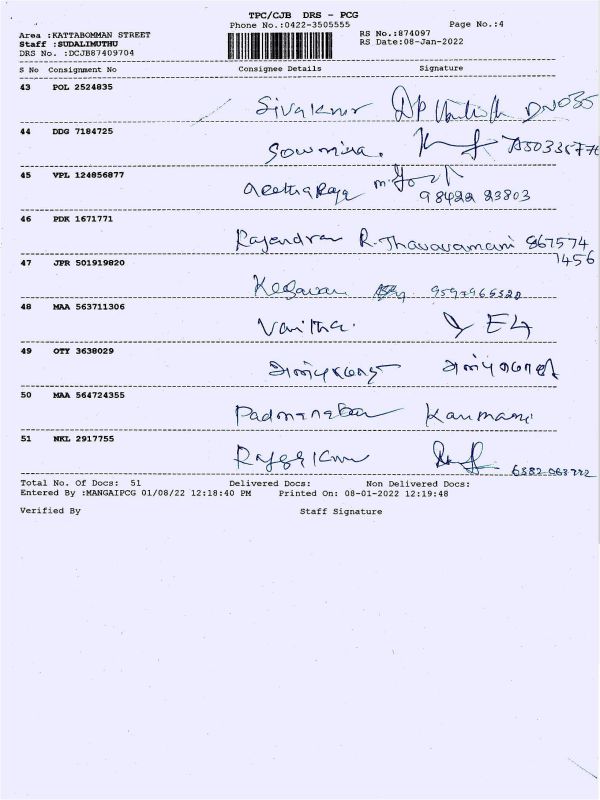 TPC/CJB DRS - PCG
Phone No.:0422-3505555 Page No.:4
Area :KATTABOMMAN STREET RS No.:874097
Staff :SUDALIMUTHU RS Date:08-Jan-2022
DRS No. :DCJB87409704
S No Consignment No Consignee Details Signature
43 POL 2524835
Sivakumar
44 DDG 7184725
Sowmiya.
45 VPL 124856877
98422 23803
46 PDK 1671771
Rajendran R. Thavavamani 867574
7456
47 JPR 501919820
Kesavan
48 MAA 563711306
Vanitha.
49 OTY 3638029
50 MAA 564724355
Padmanaban Kanmani
51 NKL 2917755
Total No. Of Docs: 51 Delivered Docs: Non Delivered Docs:
Entered By :MANGAIPCG 01/08/22 12:18:40 PM Printed On: 08-01-2022 12:19:48
Verified By Staff Signature